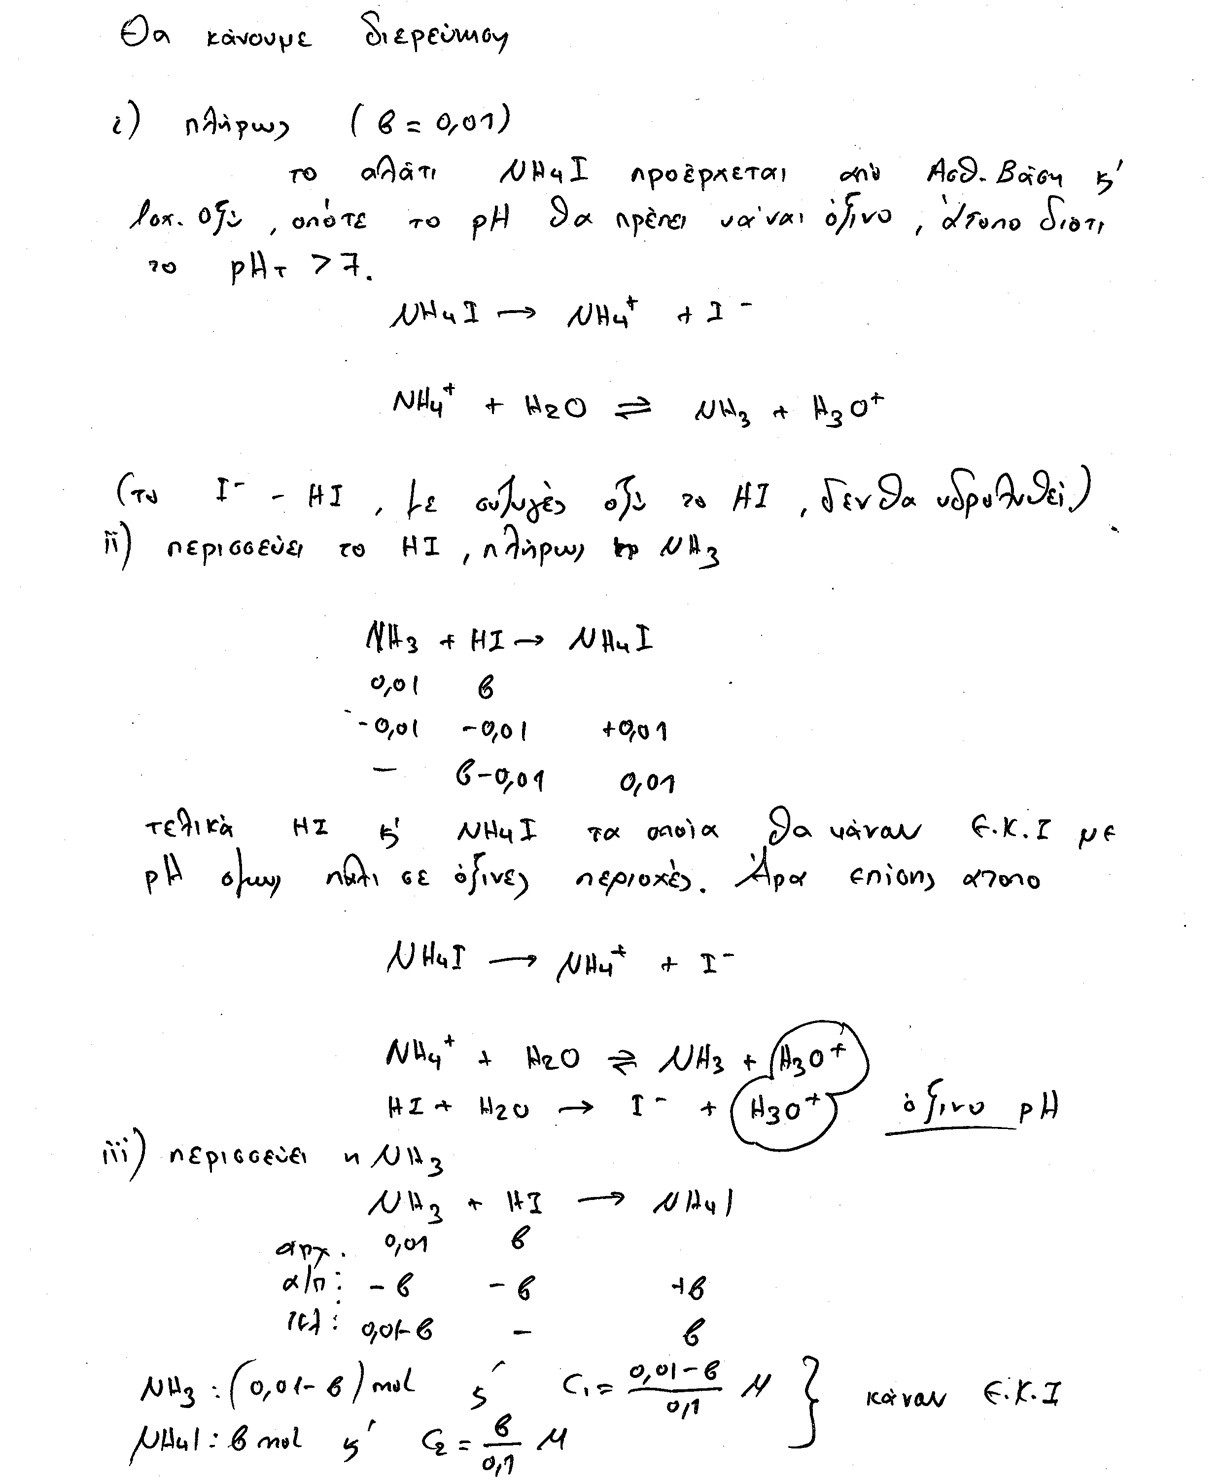 Θα κάνουμε διερεύνηση
i) πλήρως (β = 0,01)
το αλάτι NH4I προέρχεται από Ασθ. Βάση κ'
Ισχ. οξύ, οπότε το pH θα πρέπει να'ναι όξινο, άτοπο διότι
το pHτ > 7.
NH4I → NH4+ + I-
NH4+ + H2O ⇌ NH3 + H3O+
(το I- - HI, με συζυγές οξύ το HI, δεν θα υδρολυθεί)
ii) περισσεύει το HI, πλήρως NH3
NH3 + HI → NH4I
0,01 β
-0,01 -0,01 +0,01
- β-0,01 0,01
τελικά HI κ' NH4I τα οποία θα κάναν Ε.Κ.Ι με
pH όμως πάλι σε όξινες περιοχές. Άρα επίσης άτοπο
NH4I → NH4+ + I-
NH4+ + H2O ⇌ NH3 + H3O+
HI + H2O → I- + H3O+ όξινο pH
iii) περισσεύει η NH3
NH3 + HI → NH4I
αρχ. 0,01 β
α/π: -β -β +β
τελ: 0,01-β - β
NH3: (0,01-β) mol κ' C1 = (0,01-β)/0,1 M } κάναν Ε.Κ.Ι
NH4I: β mol κ' C2 = β/0,1 M